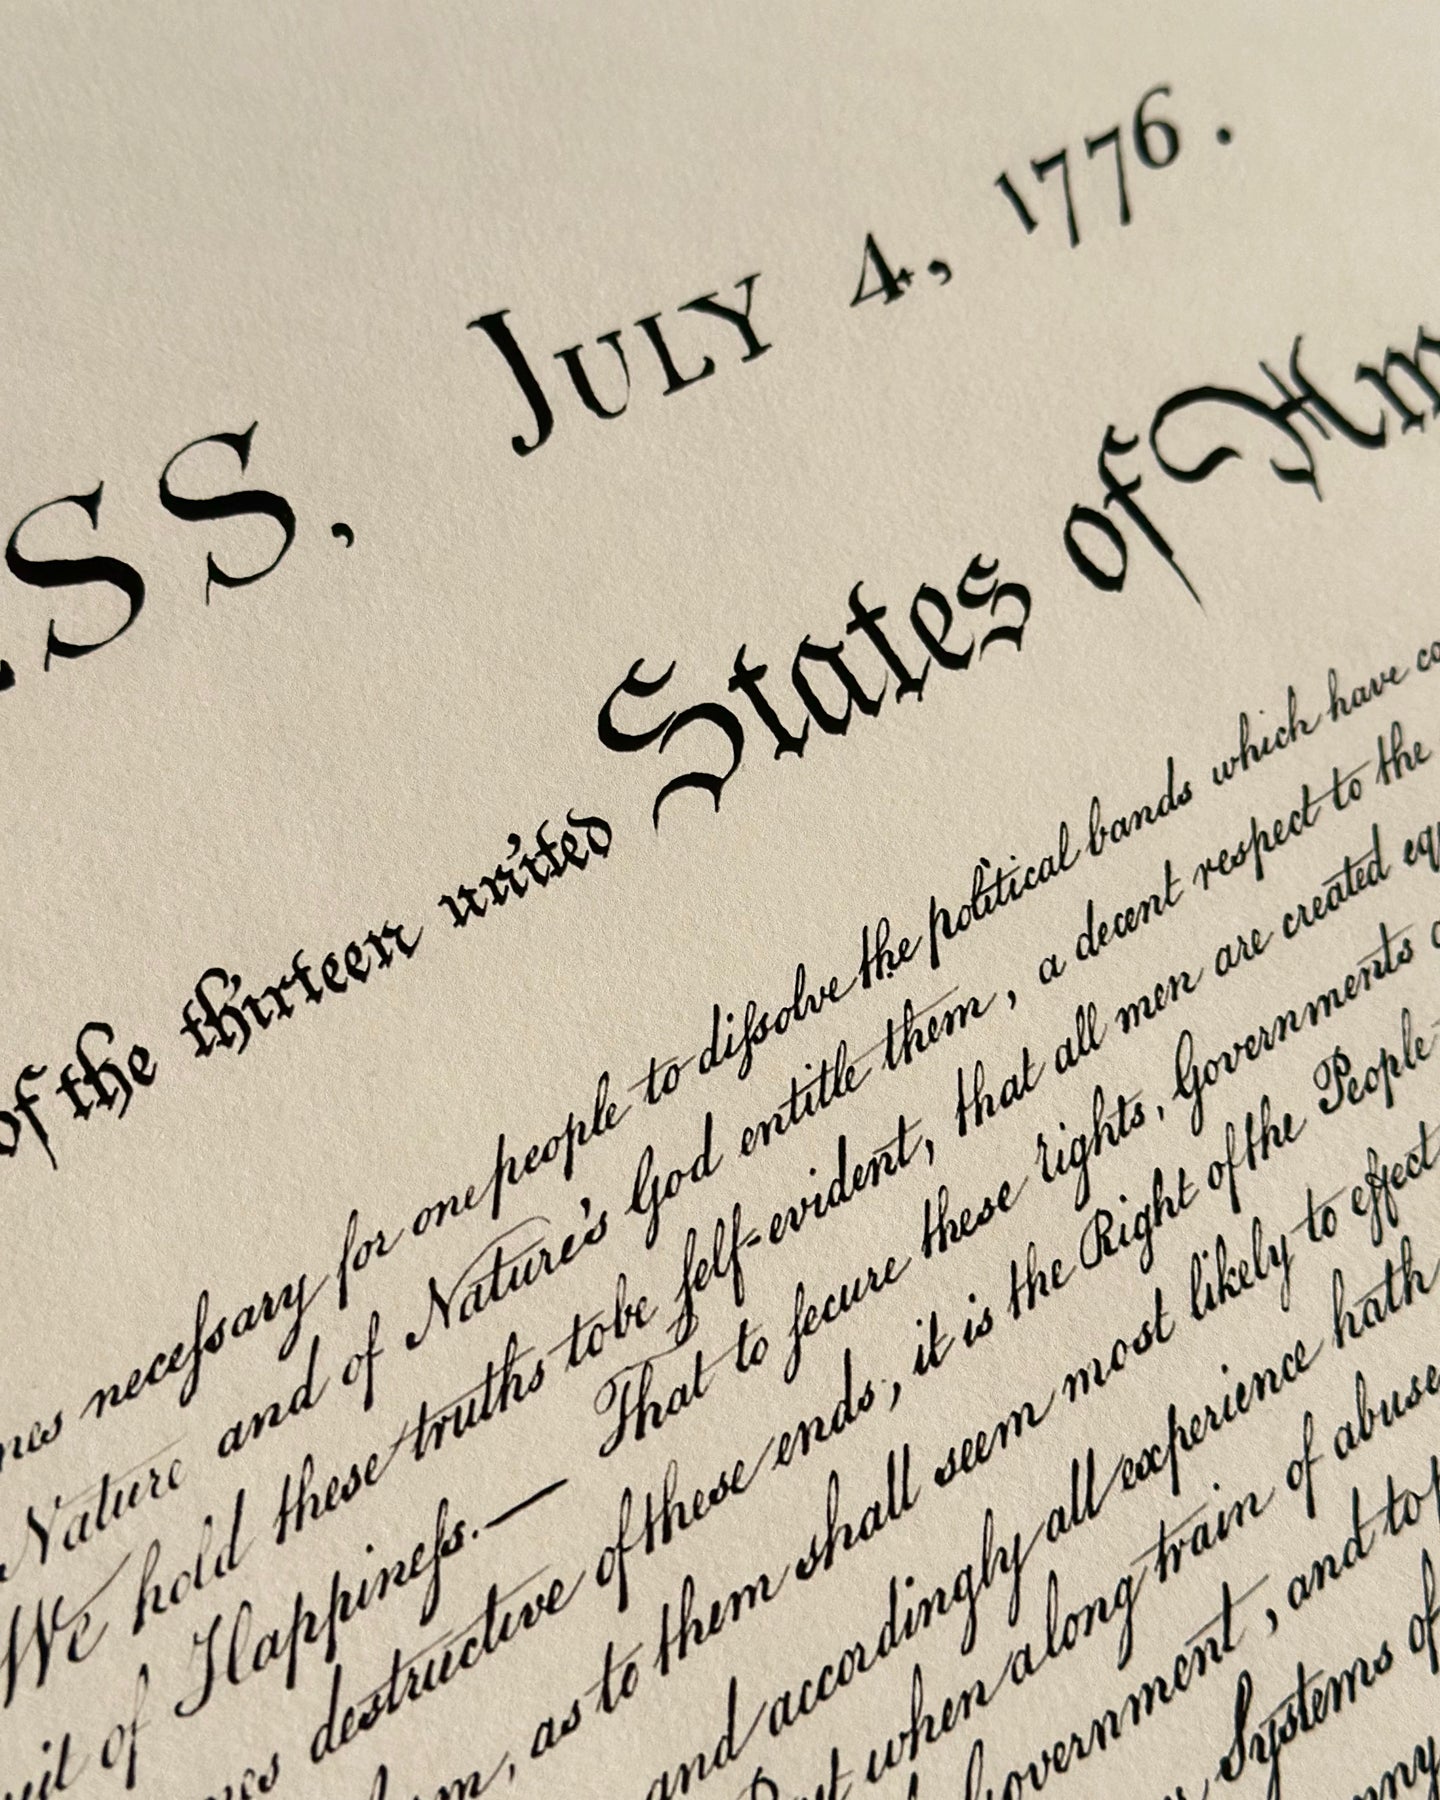 SS, JULY 4, 1776.
of the thirteen united States of Am
nes neceſsary for one people to diſsolve the political bands which have co
Nature and of Nature's God entitle them, a decent respect to the
We hold these truths to be ſelf-evident, that all men are created eq
uit of Happineſs.— That to ſecure these rights, Governments
mes destructive of these ends, it is the Right of the People
m, as to them shall seem most likely to effect
and accordingly all experience hath
But when a long train of abuse
Government, and to
Systems of